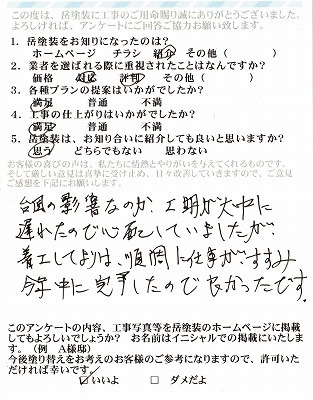 この度は、岳塗装に工事のご用命賜り誠にありがとうございました。
よろしければ、アンケートにご回答ご協力お願い致します。
1. 岳塗装をお知りになったのは?
ホームページ チラシ 紹介 その他( )
2. 業者を選ばれる際に重視されたことはなんですか?
価格 対応 評判 その他( )
3. 各種プランの提案はいかがでしたか?
満足 普通 不満
4. 工事の仕上がりはいかがでしたか?
満足 普通 不満
5. 岳塗装は、お知り合いに紹介しても良いと思いますか?
思う どちらでもない 思わない
お客様の喜びの声は、私たちに情熱とやりがいを与えてくれるものです。
そして厳しい意見は真摯に受け止め、日々改善していきますので、ご意見
ご感想を下記にお願いします。
台風の影響なのか、工期が大巾に
遅れたので心配していましたが、
着工してよりは、順調に仕事がすすみ
今年中に完事したので良かったです。
このアンケートの内容、工事写真等を岳塗装のホームページに掲載
してもよろしいでしょうか? お名前はイニシャルでの掲載にいたしま
す。(例 A様邸)
今後塗り替えをお考えのお客様のご参考になりますので、許可いた
だければ幸いです。
☑いいよ □ ダメだよ